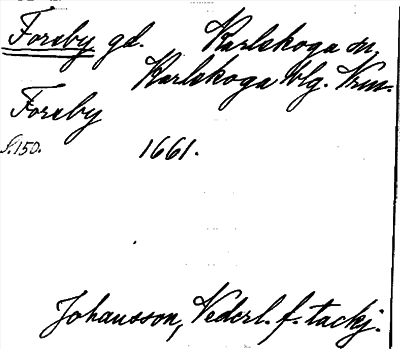 Forsby gd. Karlskoga sn
Karlskoga blg. Vrm.
Forsby
S.150. 1661.
Johansson, Vederl. f. tackj.